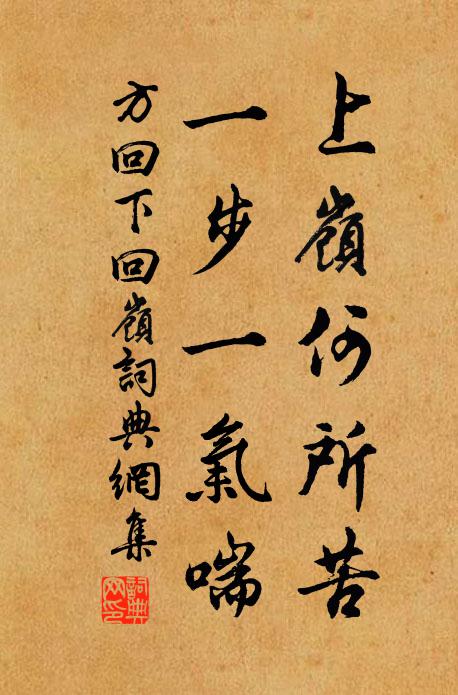 上嶺何所苦
一步一氣喘
方回下回嶺詞典網集
詞典网印